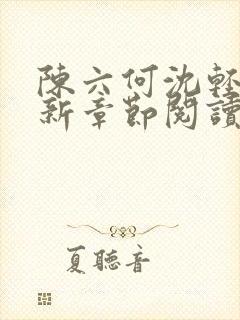 陳六何沈輕
新章節閱讀
夏聽音